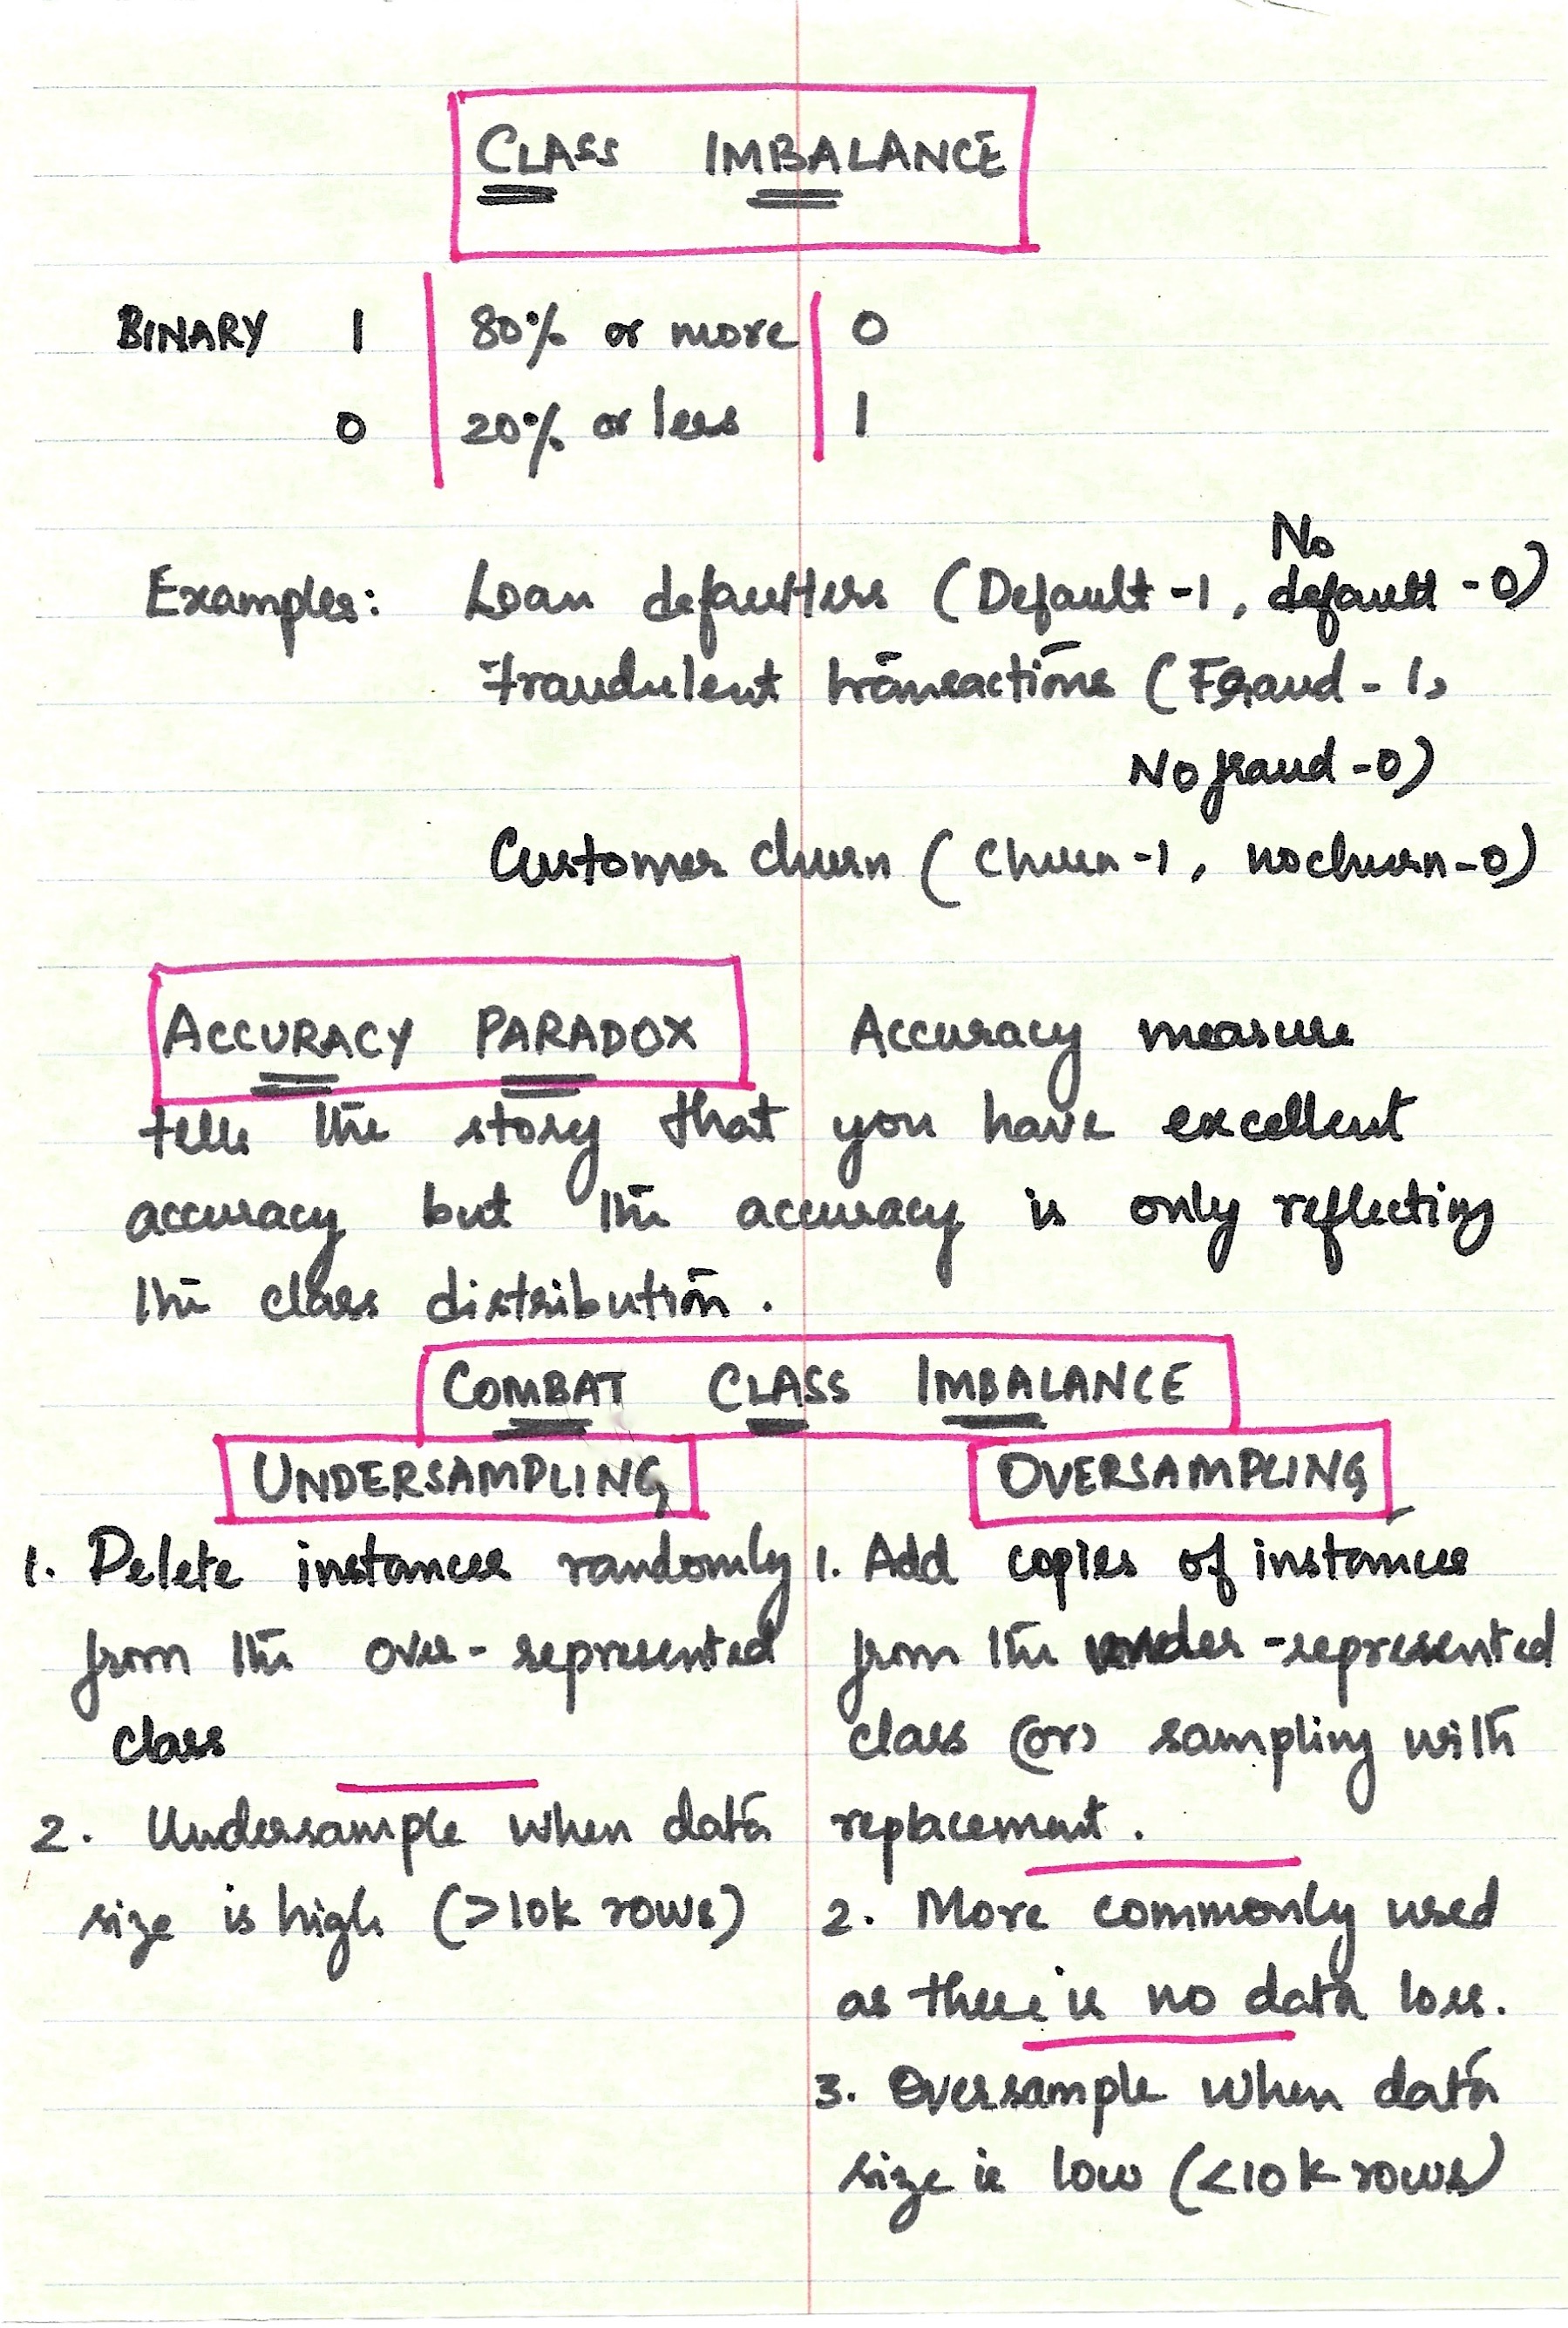 CLASS IMBALANCE
BINARY 1 | 80% or more | 0
0 | 20% or less | 1
No
Examples: Loan defaulters (Default -1, default -0)
Fraudulent transactions (Fraud - 1,
No fraud -0)
Customer churn (Churn -1, no churn -0)
ACCURACY PARADOX Accuracy measure
tells the story that you have excellent
accuracy but the accuracy is only reflecting
the class distribution.
COMBAT CLASS IMBALANCE
UNDERSAMPLING
1. Delete instances randomly
from the over-represented
class
2. Undersample when data
size is high (>10k rows)
OVERSAMPLING
1. Add copies of instances
from the under-represented
class (or) sampling with
replacement.
2. More commonly used
as there is no data loss.
3. Oversample when data
size is low (<10k rows)